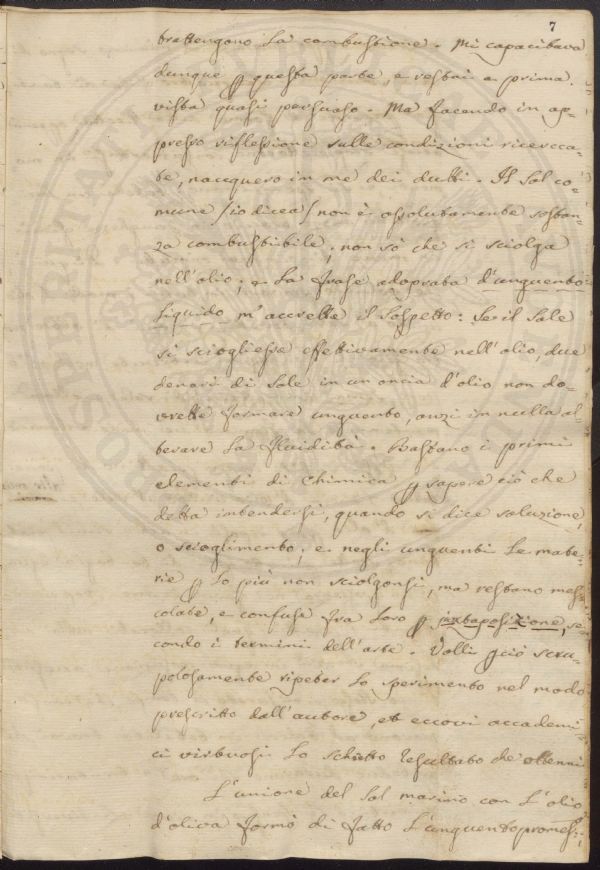 7
trattengono la combustione. Mi capacitava
dunque p questa parte, e restai a prima
vista quasi persuaso. Ma facendo in ap-
presso riflessione sulle condizioni ricerca-
te, nacquero in me dei dubbi. Il sal co-
mune /io dicea/ non è assolutamente sostan-
za combustibile; non sò che si sciolga
nell'olio; e la frase adoprata d'unguento
liquido m'accrebbe il sospetto: Se il sale
si sciogliesse effettivamente nell'olio, due
denari di sale in un oncia d'olio non do-
vrebbe formare unguento, anzi in nulla al-
terare la fluidità. Bastano i primi
elementi di Chimica p sapere ciò che
debba intendersi, quando si dice soluzione,
o scioglimento; e negli unguenti le mate-
rie p lo più non sciolgonsi, ma restano mes-
colate, e confuse fra loro p juxtaposizione, se-
condo i termini dell'arte. Volli p ciò scru-
polosamente ripeter lo sperimento nel modo
prescritto dall'autore, et eccovi accademi-
ci virtuosi lo schietto resultato che ottenni
L'unione del sal marino con l'olio
d'oliva formò di fatto l'unguento promes-